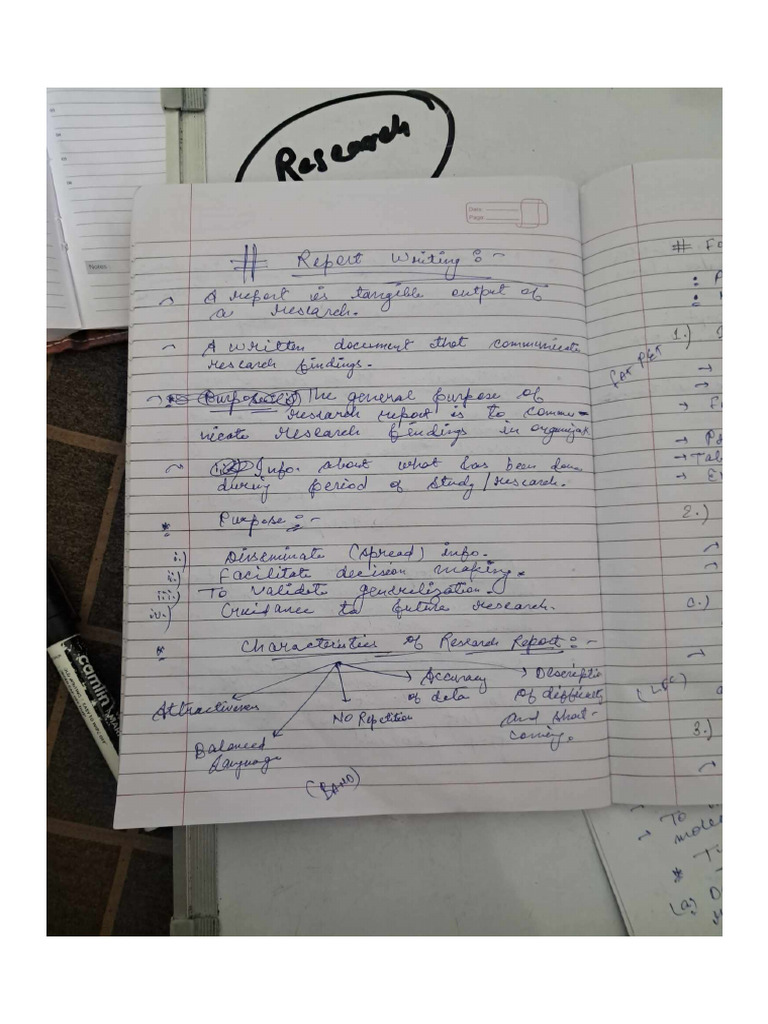 Research
Notes
Date
Page
# Report Writing :-
~ A report is tangible output of
a research.
~ A written document that communicate
research findings.
~ Purpose The general purpose of
research report is to commu-
nicate research findings in organizat
~ Info. about what has been done
during period of study/research.
* Purpose :-
i.) Disseminate (spread) info.
ii.) Facilitate decision making.
iii.) To validate genrelization.
iv.) Guidance to future research.
* Characteristics of Research Report :-
Attractiveness
Balanced
Language
No Repetition
Accuracy
of data
Descriptio
of difficulty
and short-
coming.
(BAND)
# Fo
1.)
2.)
→ Tabl
c.)
(LFC)
3.)
~ To
model
* T
(a) D
camlin